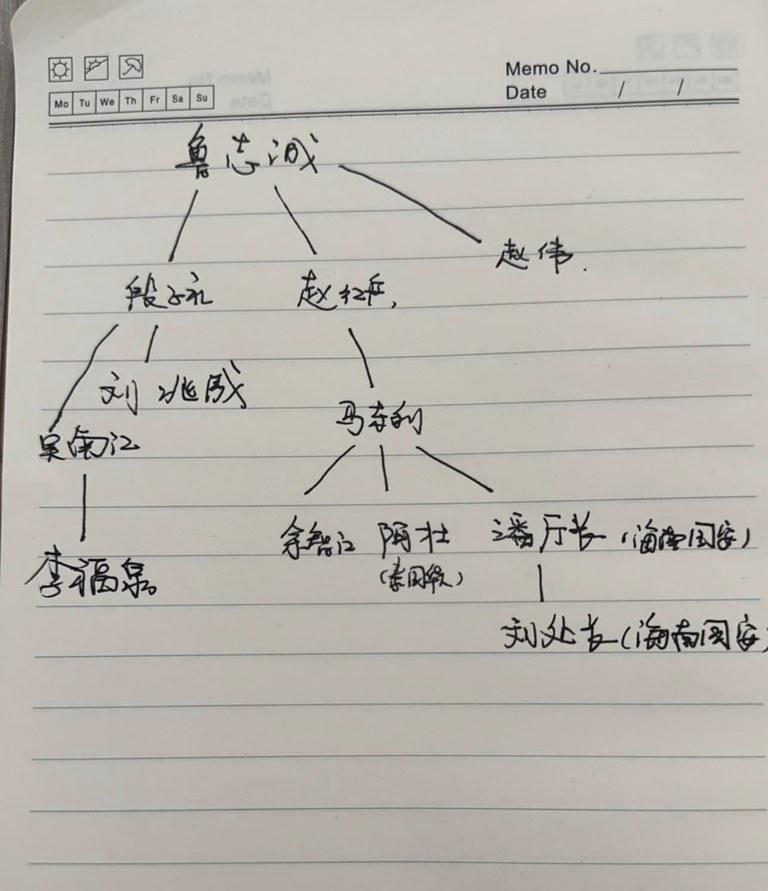 Memo No.
Mo Tu We Th Fr Sa Su
Date / /
鲁志诚
赵伟.
段子礼 赵红兵,
刘兆成
马东利
吴南江
余智江 阿壮 潘厅长(海南国安)
李福泉 (泰国级)
刘处长(海南国安)